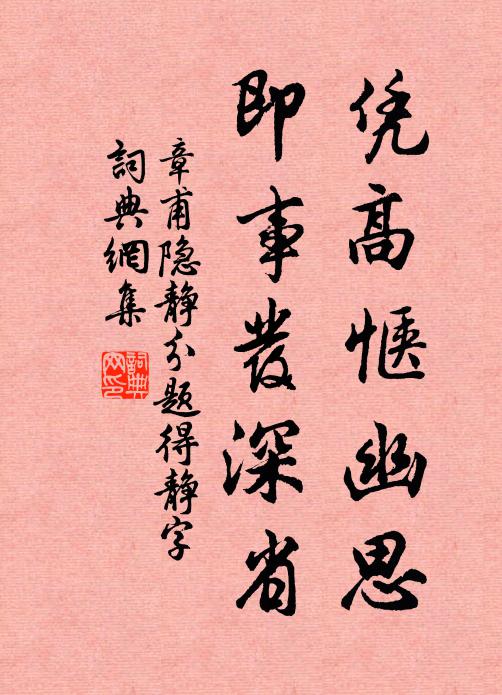 凭高惬幽思
即事发深省
章甫隐静分题得静字
詞典網集
詞典網印